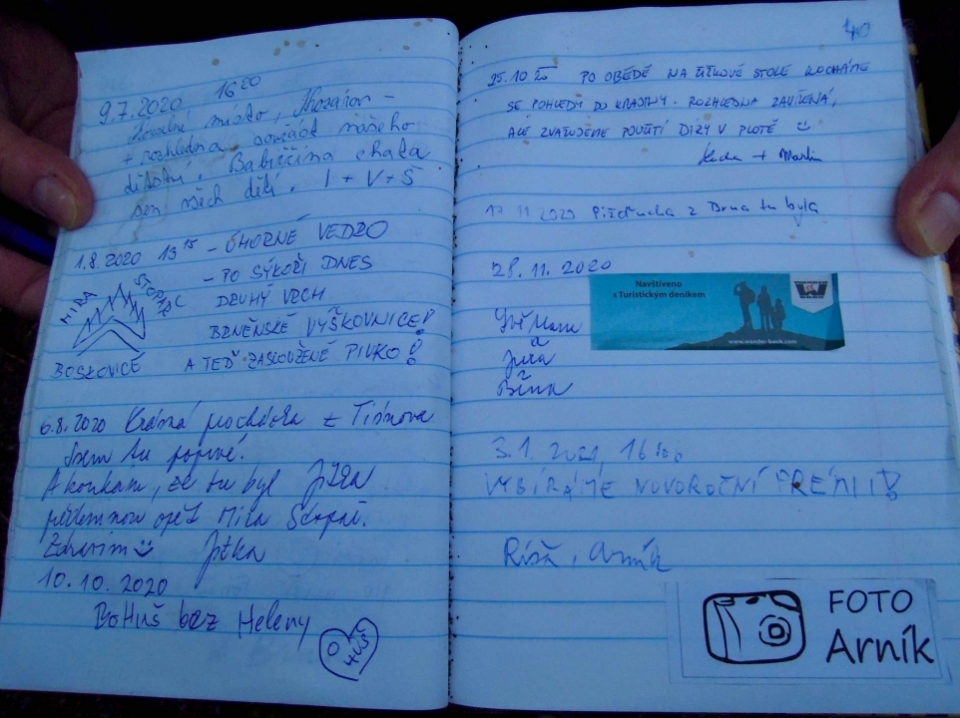 9.7.2020 16 20
místo,
+ rozhledna součást našeho
dětství. Babiččina chata
sen všech dětí. I + V + Š
1.8.2020 13 15 - ÚMORNÉ VEDRO
- PO SÝKOŘI DNES
DRUHÝ VRCH
BRNĚNSKÉ VYŠKOVNICE!
A TEĎ ZASLOUŽENÉ PIVKO!
MÍRA STOPAŘ
BOSKOVICE
6.8.2020 Krásná procházka z Tišnova
Jsem tu poprvé.
A koukám, že tu byl
přede mnou opět Míra Stopař.
Zdravím Jitka
10.10.2020
BOHUŠ bez Heleny
40
25.10 20 PO OBĚDĚ NA STOLE KOCHÁME
SE POHLEDY DO KRAJINY. ROZHLEDNA ZAVŘENÁ,
ALE ZVAŽUJEME POUŽITÍ DÍRY V PLOTĚ
+ Martin
17 11 2020 z Brna tu byla
28.11.2020
Navštíveno
s Turistickým deníkem
www.wander-book.com
Jura
3.1.2021, 16:00
VYBÍRÁME NOVOROČNÍ PRÉMII!
Ríša, Arník
FOTO
Arník